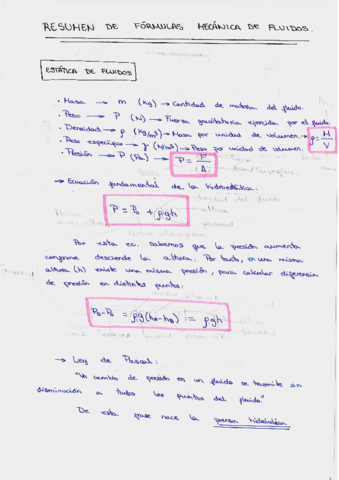 RESUMEN DE FÓRMULAS MECÁNICA DE FLUIDOS.
ESTÁTICA DE FLUIDOS
· Masa → m (Kg) → Cantidad de materia del fluido.
· Peso → P (N) → Fuerza gravitatoria ejercida por el fluido
· Densidad → ρ (Kg/m³) → Masa por unidad de volumen → ρ = M/V
· Peso específico → γ (N/m³) → Peso por unidad de volumen.
· Presión → P (Pa) → P = F/A
→ Ecuación fundamental de la hidrostática:
P = P₀ + ρgh
Por esta ec. sabemos que la presión aumenta
conforme desciende la altura. Por tanto, en una misma
altura (h) existe una misma presión, para calcular diferencia
de presión en distintos puntos:
ρg(hA-hB) = ρgh
→ Ley de Pascal:
"Un cambio de presión en un fluido se trasmite sin
disminución a todos los puntos del fluido."
De esta frase nace la prensa hidráulica